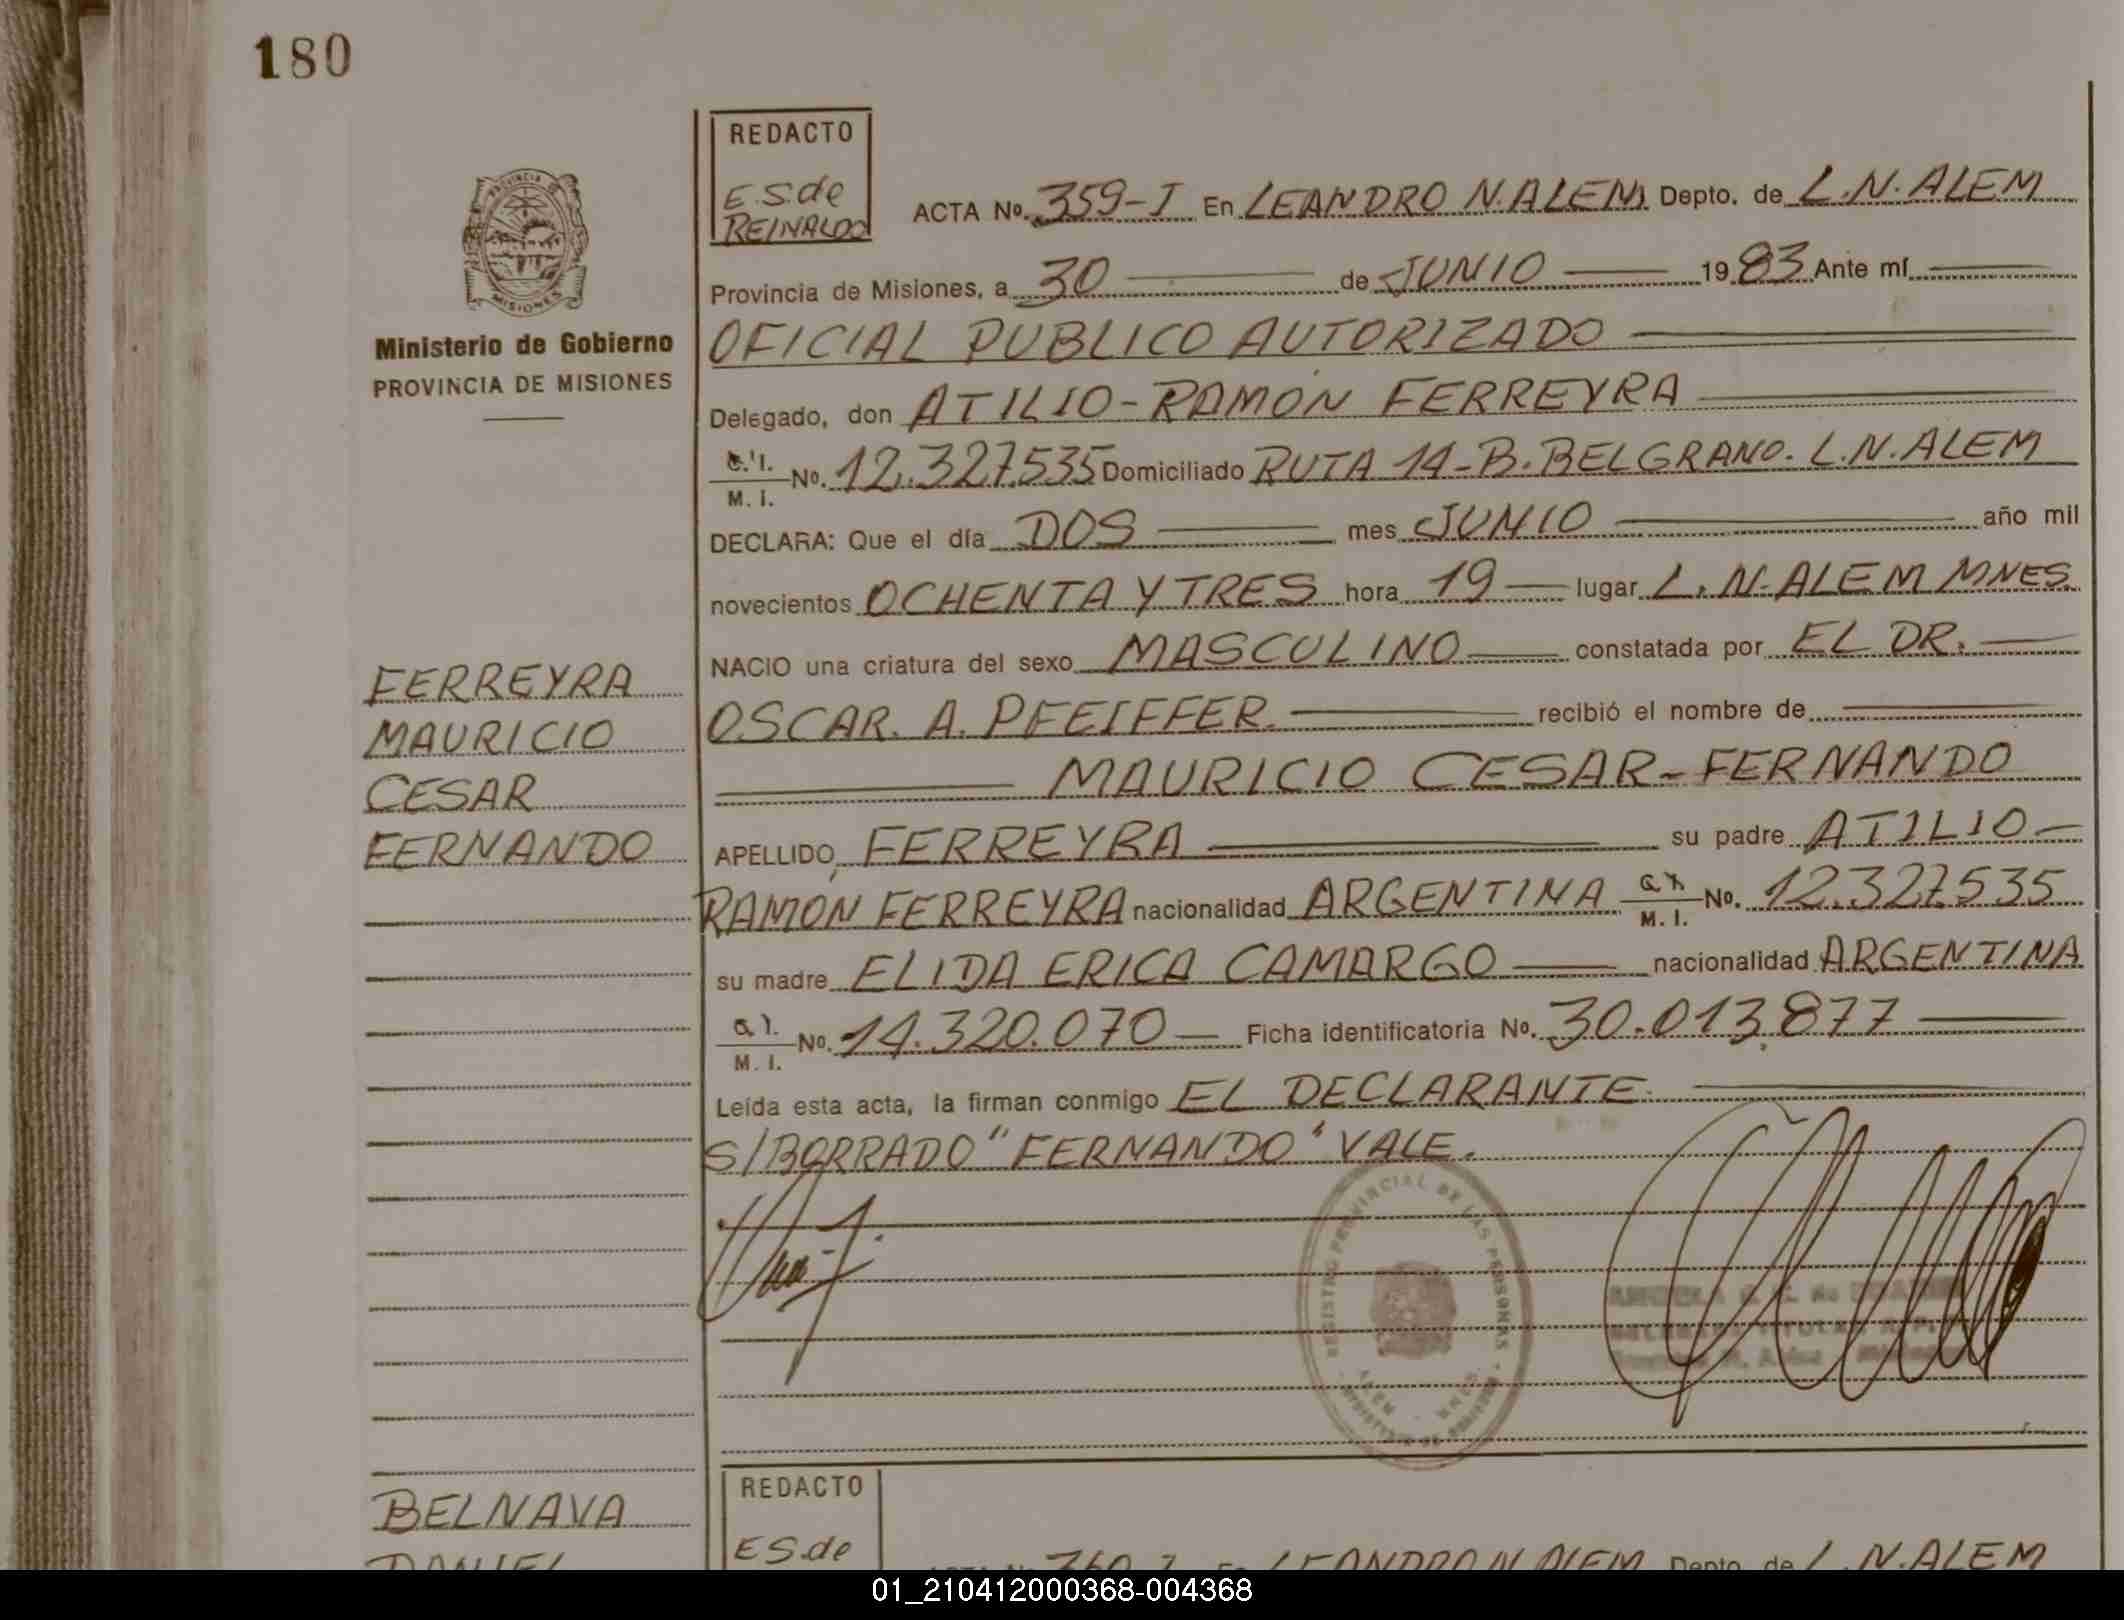 180
REDACTO
E.S.de
REINALDO
ACTA No. 359-I En LEANDRO N. ALEM Depto. de L.N. ALEM
PROVINCIA DE
MISIONES
Provincia de Misiones, a 30 de JUNIO 1983 Ante mí
Ministerio de Gobierno
PROVINCIA DE MISIONES
OFICIAL PUBLICO AUTORIZADO
Delegado, don ATILIO-RAMÓN FERREYRA
C.I.
M. I. No. 12.327.535 Domiciliado RUTA 14-B. BELGRANO. L.N. ALEM
DECLARA: Que el día DOS mes JUNIO año mil
novecientos OCHENTA Y TRES hora 19 lugar L. N. ALEM MNES.
NACIO una criatura del sexo MASCULINO constatada por EL DR.
OSCAR. A. PFEIFFER. recibió el nombre de
MAURICIO CESAR-FERNANDO
FERREYRA
MAURICIO
CESAR
FERNANDO
APELLIDO, FERREYRA su padre ATILIO
RAMÓN FERREYRA nacionalidad ARGENTINA M. I. No. 12.327.535
su madre ELIDA ERICA CAMARGO nacionalidad ARGENTINA
M. I. No. 14.320.070 Ficha identificatoria No. 30.013.877
Leída esta acta, la firman conmigo EL DECLARANTE.
S/BORRADO "FERNANDO" VALE.
REGISTRO PROVINCIAL DE LAS PERSONAS
ALEM MNES.
BELNAVA
DANIEL
REDACTO
ES.de
ACTA No. 360-I En LEANDRO N. ALEM Depto. de L.N. ALEM
01_210412000368-004368